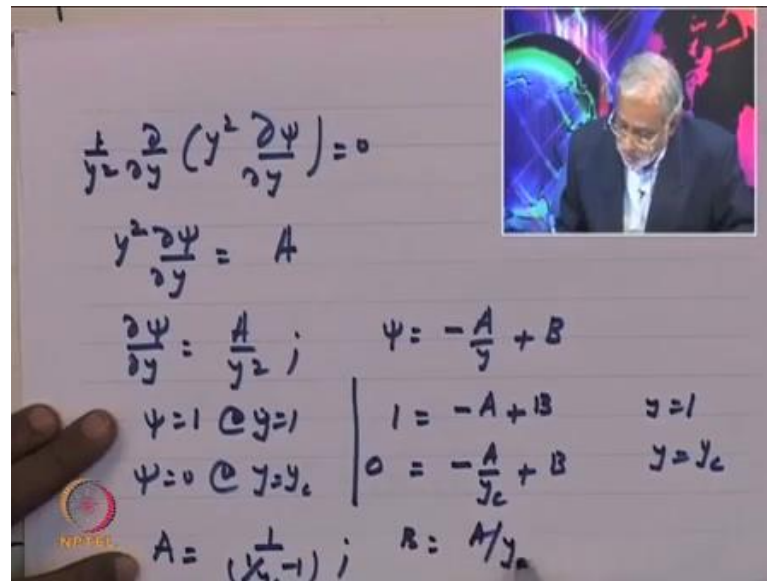 1/y² ∂/∂y (y² ∂ψ/∂y) = 0
y² ∂ψ/∂y = A
∂ψ/∂y = A/y² ; ψ = -A/y + B
ψ=1 @ y=1 | 1 = -A + B y=1
ψ=0 @ y=y_c | 0 = -A/y_c + B y=y_c
A = 1/(1/y_c -1) ; B = A/y_c
NPTEL